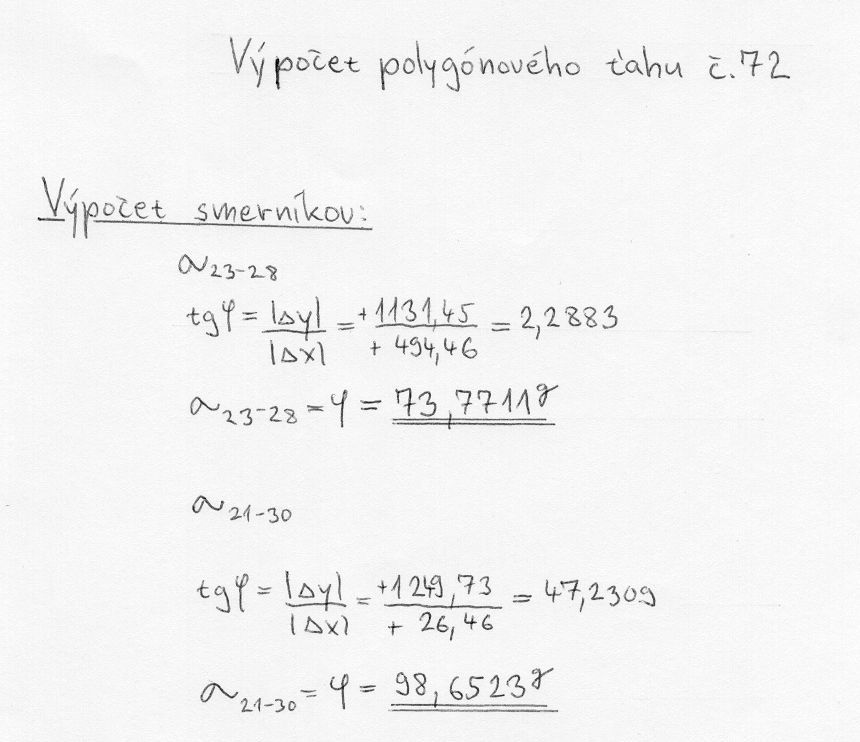 Výpočet polygónového ťahu č.72
Výpočet smerníkov:
α23-28
tgφ = |Δy| / |Δx| = +1131,45 / + 494,46 = 2,2883
α23-28 = φ = 73,7711g
α21-30
tgφ = |Δy| / |Δx| = +1249,73 / + 26,46 = 47,2309
α21-30 = φ = 98,6523g